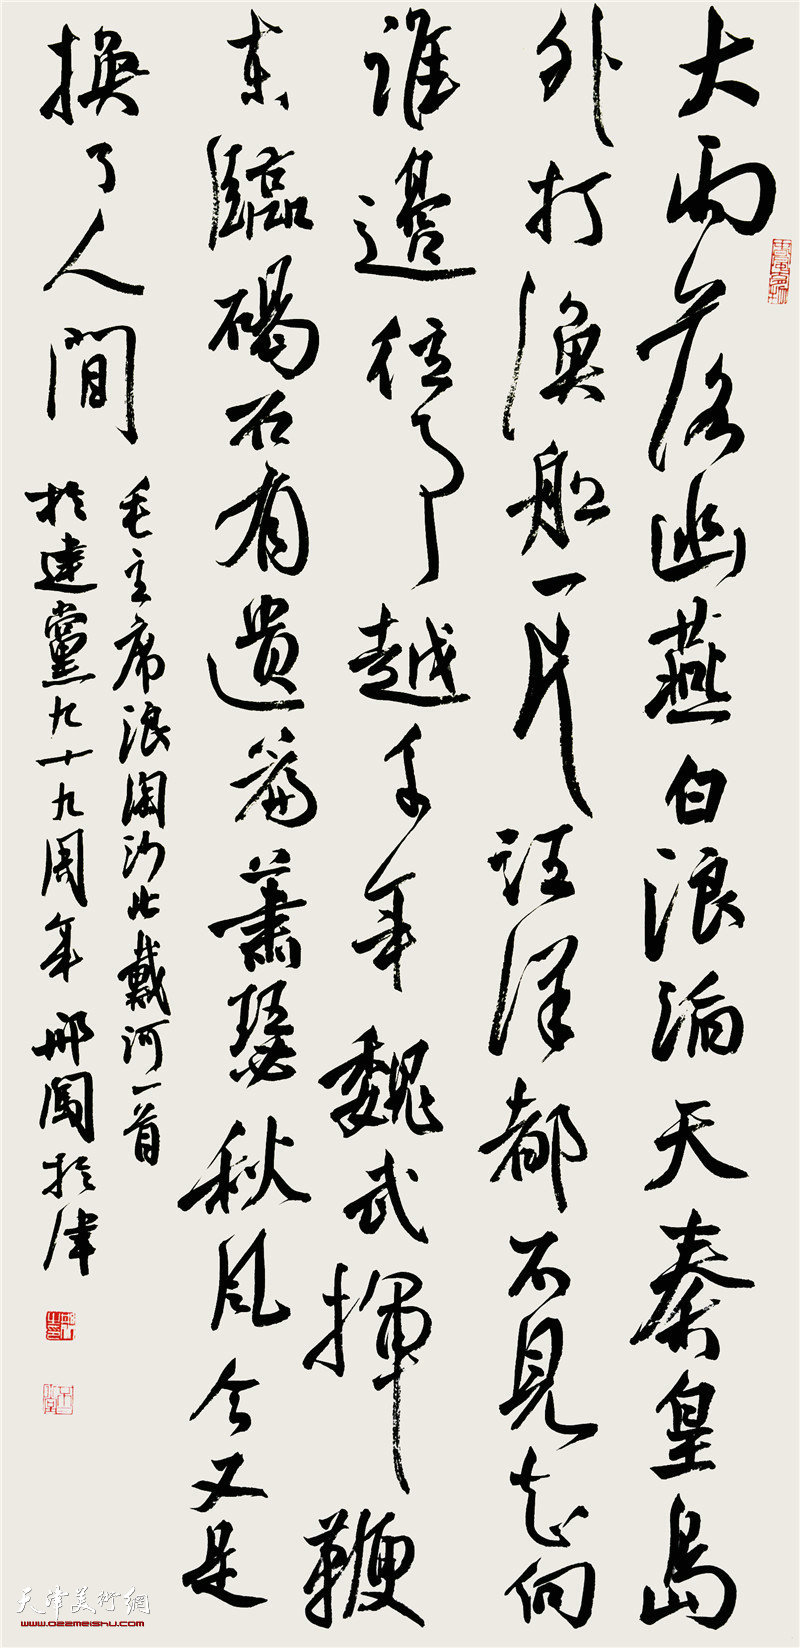 大雨落幽燕白浪滔天秦皇島
外打漁船一片汪洋都不見知向
誰邊往事越千年魏武揮鞭
東臨碣石有遺篇蕭瑟秋風今又是
換了人間
毛主席浪淘沙北戴河一首
於建黨九十九周年邢於津
天津美術網
www.022meishu.com